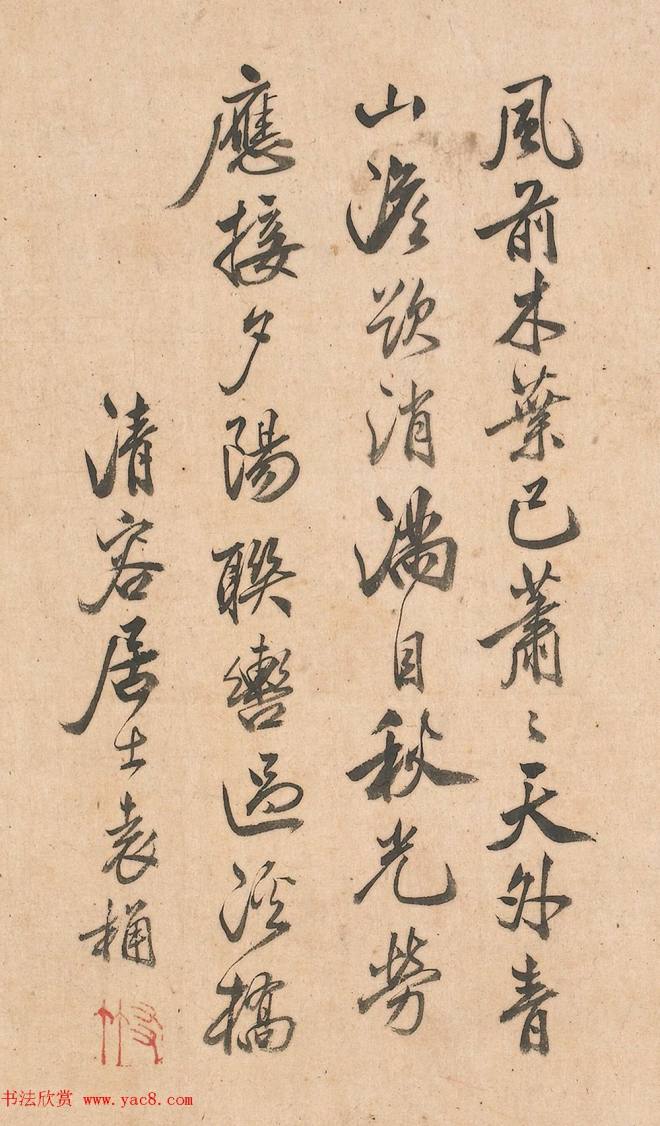 風前木葉已蕭〻天外青
山澹欲消滿目秋光勞
應接夕陽聯轡過溪橋
清容居士袁桷
书法欣赏 www.yac8.com